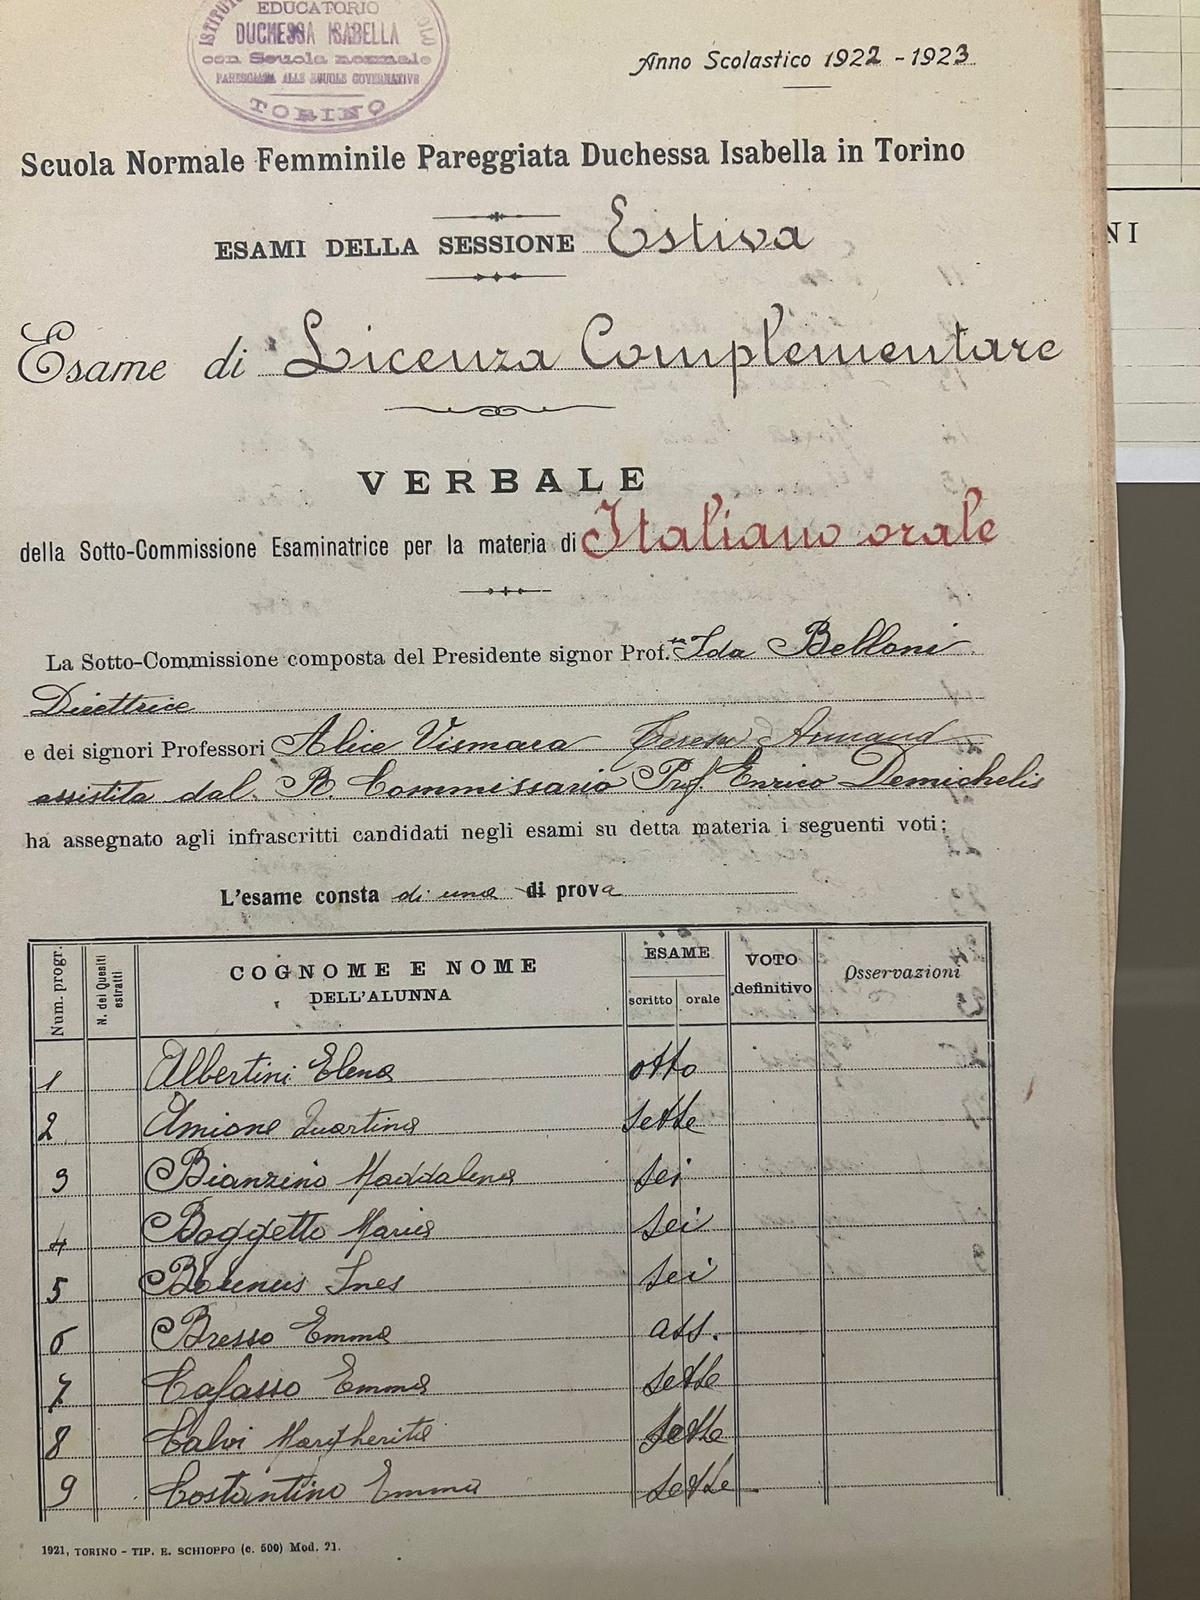 EDUCATORIO
DUCHESSA ISABELLA
con Scuola normale
PAREGGIATA ALLE SCUOLE GOVERNATIVE
TORINO
Anno Scolastico 1922 - 1923
Scuola Normale Femminile Pareggiata Duchessa Isabella in Torino
ESAMI DELLA SESSIONE Estiva
Esame di Licenza Complementare
VERBALE
della Sotto-Commissione Esaminatrice per la materia di Italiano orale
La Sotto-Commissione composta del Presidente signor Prof.ssa Ida Belloni
Direttrice
e dei signori Professori Alice Vismara Teresa Armand
assistita dal R. Commissario Prof. Enrico Demichelis
ha assegnato agli infrascritti candidati negli esami su detta materia i seguenti voti:
L'esame consta di una di prova
Num. progr. N. dei Quesiti estratti COGNOME E NOME DELL'ALUNNA ESAME scritto orale VOTO definitivo Osservazioni
1 Albertini Elena otto
2 Amione Quartina sette
3 Bianzino Maddalena sei
4 Boggetto Maria sei
5 Ines sei
6 Bresso Emma ass.
7 Cafasso Emma sette
8 Calvi Margherita sette
9 Costantino Emma sette
1921, TORINO - TIP. E. SCHIOPPO (c. 500) Mod. 21.
NI